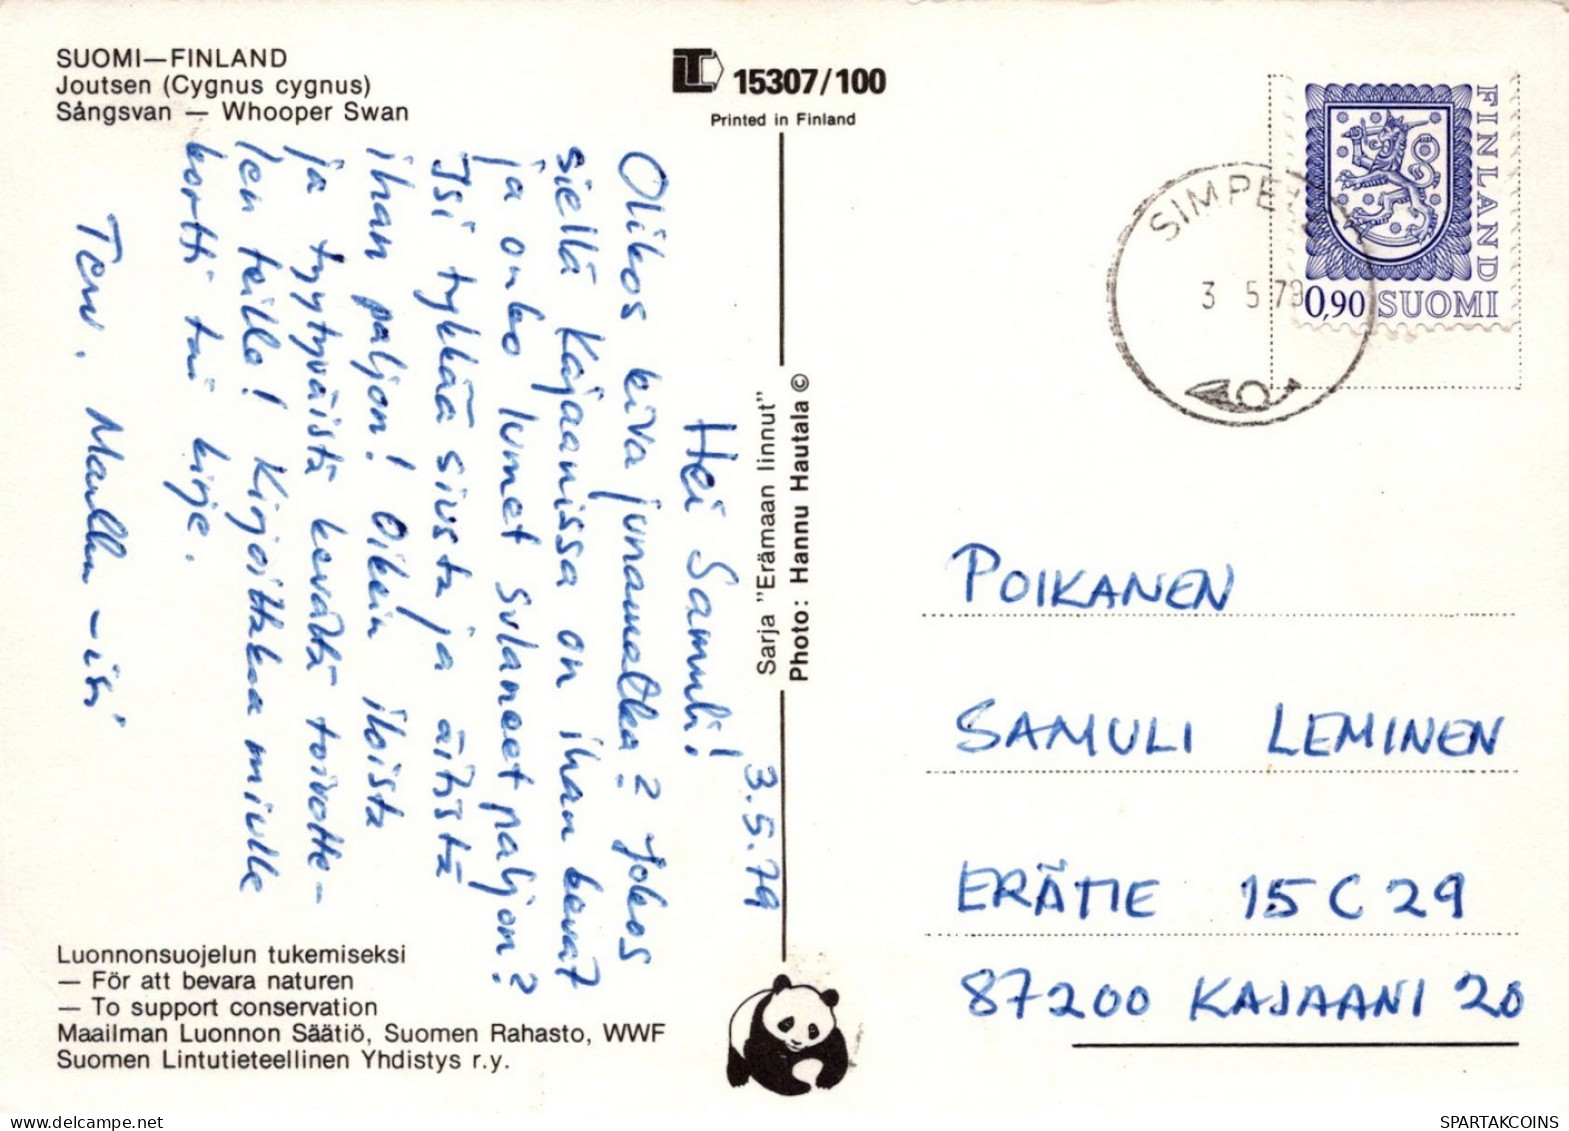 SUOMI—FINLAND
Joutsen (Cygnus cygnus)
Sångsvan — Whooper Swan
LT 15307/100
Printed in Finland
FINLAND
0,90 SUOMI
3 5 79
3.5.79
Hei Samuli!
Olikos kiva junamatka? Jokos
siellä Kajaanissa on ihan kevat
ja onko lumet sulaneet paljon?
Isi tykkää siusta ja äitistä
ihan paljon! Oikein iloista
ja tyytyväistä kevättä toivotte-
len teille! Kirjoittakaa miulle
kortti tai kirje.
Terv. -isi
Sarja "Erämaan linnut"
Photo: Hannu Hautala ©
POIKANEN
SAMULI LEMINEN
ERÄTIE 15 C 29
87200 KAJAANI 20
Luonnonsuojelun tukemiseksi
— För att bevara naturen
— To support conservation
Maailman Luonnon Säätiö, Suomen Rahasto, WWF
Suomen Lintutieteellinen Yhdistys r.y.
SPARTAKCOINS
delcampe.net